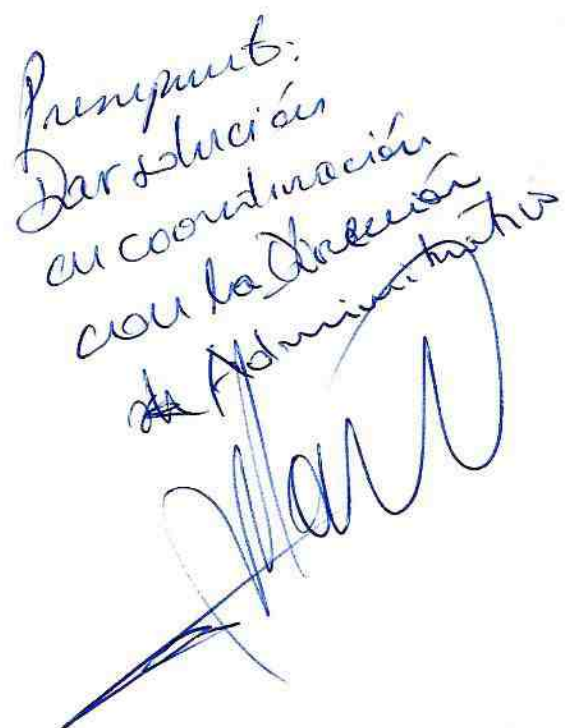 Presupuesto:
Dar solución
en coordinación
con la Dirección
Administrativa